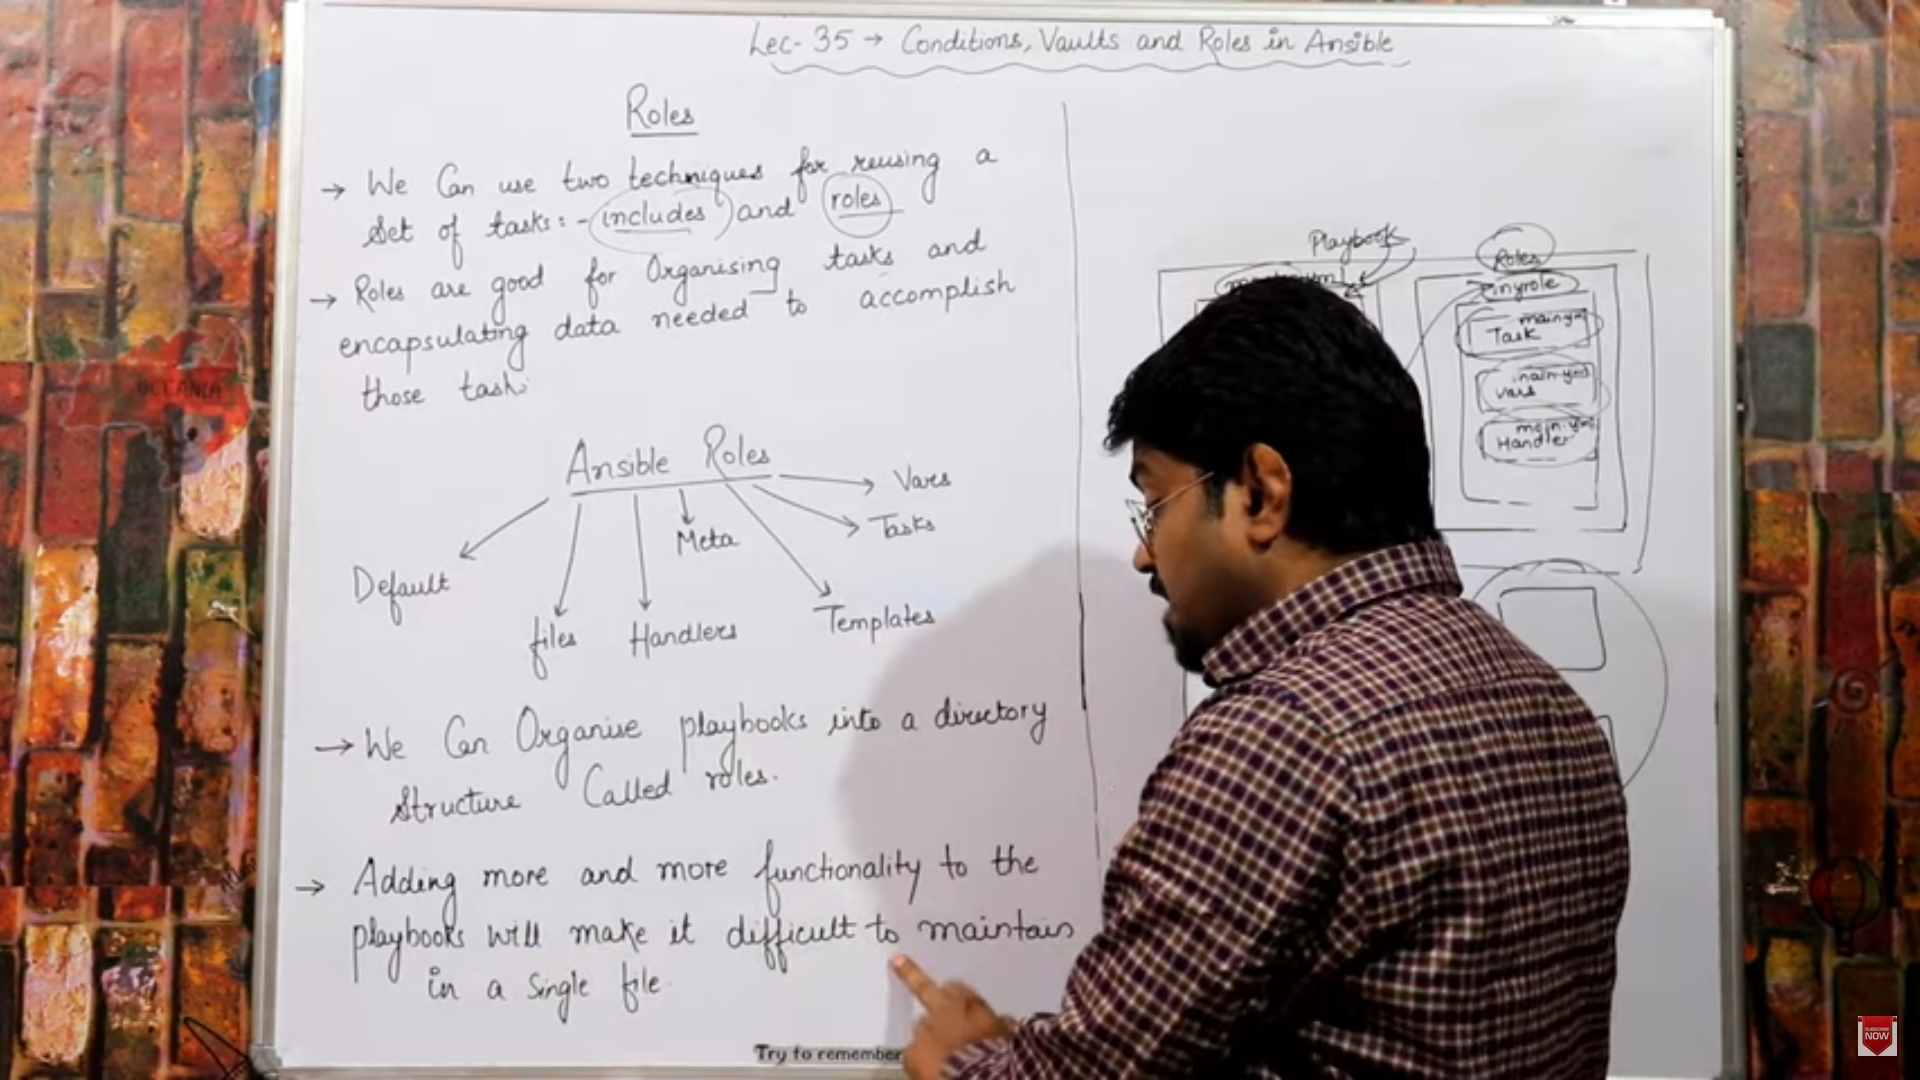 Lec- 35 → Conditions, Vaults and Roles in Ansible
Roles
→ We Can use two techniques for reusing a
Set of tasks: - includes and roles
→ Roles are good for Organising tasks and
encapsulating data needed to accomplish
those tasks
Ansible Roles
Vars
Tasks
Meta
Default
files
Handlers
Templates
→ We Can Organise playbooks into a directory
Structure Called roles.
→ Adding more and more functionality to the
playbooks will make it difficult to maintain
in a single file.
Playbook
Roles
Task
vars
Handler
OCEANIA
Try to remember
SUBSCRIBE
NOW